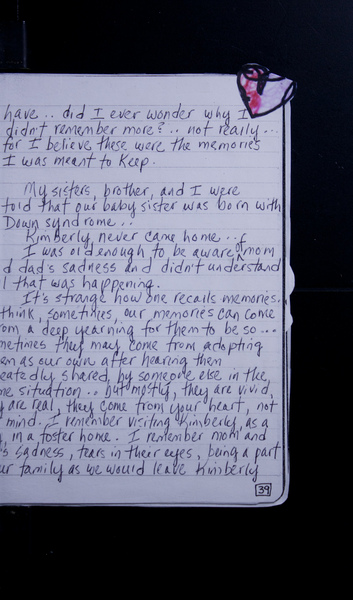 have .. did I ever wonder why I
didn't remember more? .. not really ...
for I believe these were the memories
I was meant to keep.
My sisters, brother, and I were
told that our baby sister was born with
Down syndrome ..
Kimberly never came home ..
I was old enough to be aware of mom
d dad's sadness and didn't understand
l that was happening.
It's strange how one recalls memories..
think, sometimes, our memories can come
rom a deep yearning for them to be so ...
metimes they may come from adopting
em as our own after hearing them
eatedly shared, by someone else in the
me situation .. but mostly, they are vivid,
y are real, they come from your heart, not
mind. I remember visiting Kimberly, as a
, in a foster home. I remember mom and
's sadness, tears in their eyes, being a part
ur family as we would leave Kimberly
39